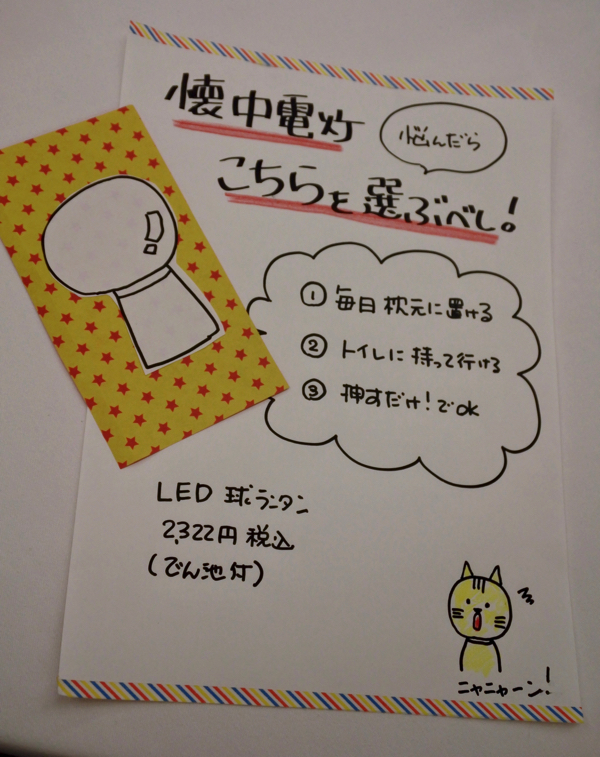 懐中電灯
悩んだら
こちらを選ぶべし!
① 毎日枕元に置ける
② トイレに持って行ける
③ 押すだけ!でOK
LED 球ランタン
2,322円 税込
(でん池灯)
ニャニャーン!